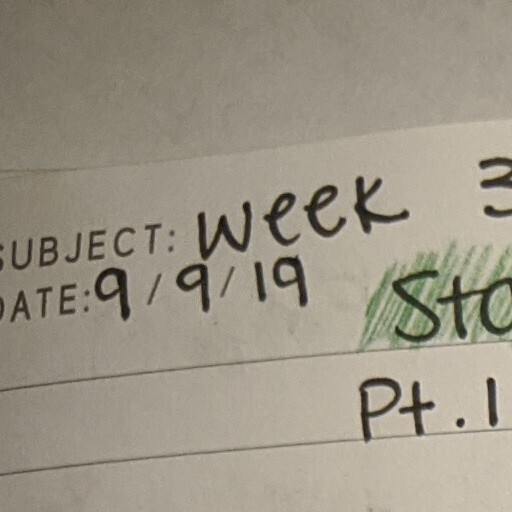 SUBJECT: Week 3
DATE: 9/9/19
Pt. 1